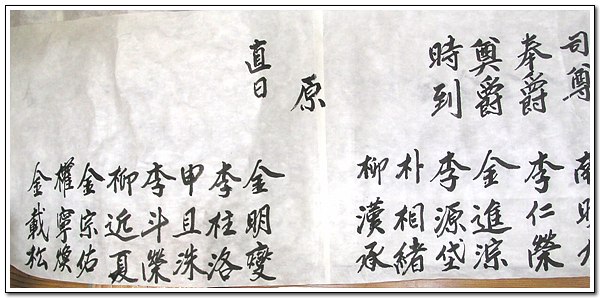 司尊 南明
奉爵 李仁榮
奠爵 金進淙
時到 李源垈
朴相緖
柳漢承
原
直日 金明燮
李柱洛
申且洙
李斗榮
柳近夏
金宗佑
權寧煥
金載松